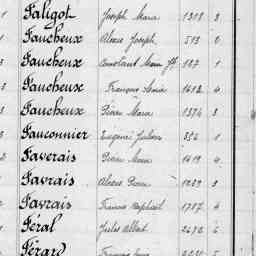 Faligot Joseph Marie 1308 3
Faucheux Alexis Joseph 513 0
Faucheux Constant Marie 187 1
Faucheux François Marie 1612 4
Faucheux Pierre Marie 1374 3
Fauconnier Eugène Julien 356 1
Faverais Pierre Marie 1419 4
Favrais Alexis Pierre 1029 3
Favrais Francois Raphaël 1777 4
Féral Jules Albert 2472 6
Férard François